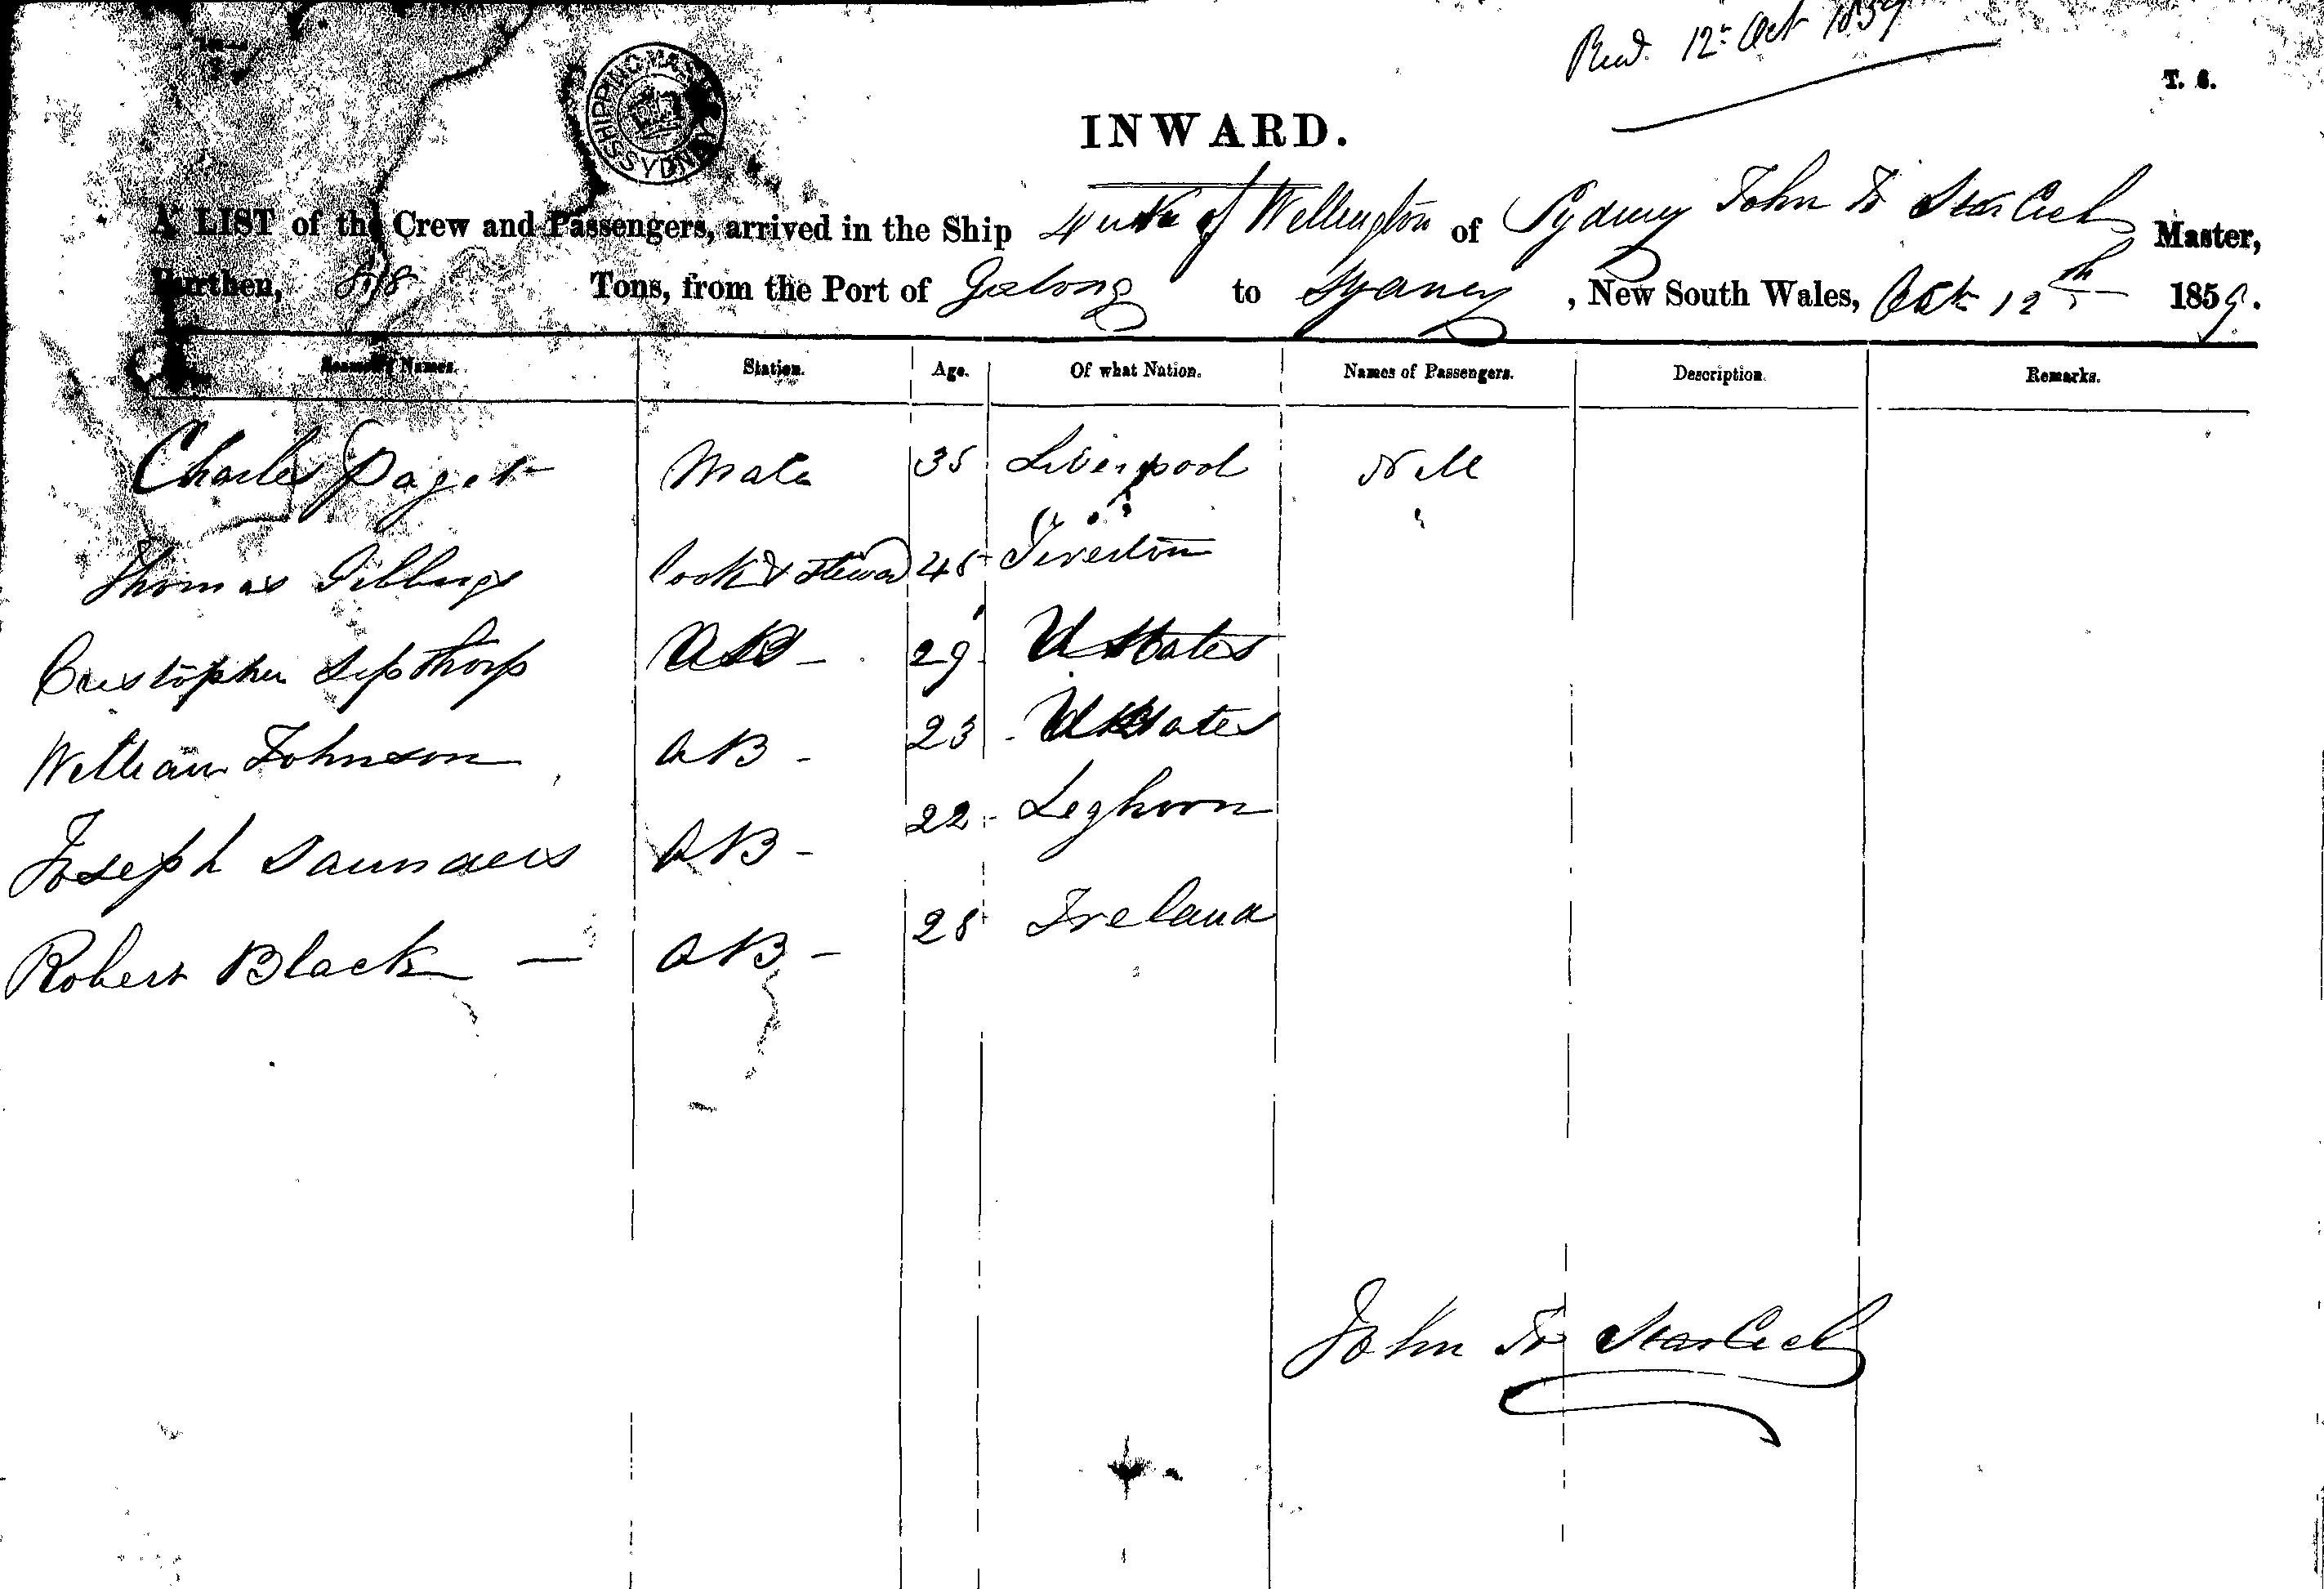 Recd. 12th Oct 1859
T. S.
SHIPPING MASTER SYDNEY
INWARD.
A LIST of the Crew and Passengers, arrived in the Ship Duke of Wellington of Sydney John T Master,
Burthen, Tons, from the Port of Geelong to Sydney, New South Wales, Oct 12th 1859.
Seamen's Names. Station. Age. Of what Nation. Names of Passengers. Description. Remarks.
Charles Paget Mate 35 Liverpool Nill
Thomas Gillings Cook & Steward 45 Tiverton
Cristopher Lipthorp AB - 29 U States
William Johnson AB - 23 - U States
Joseph Saunders AB - 22 - Leghorn
Robert Black — AB - 28 Ireland
John T